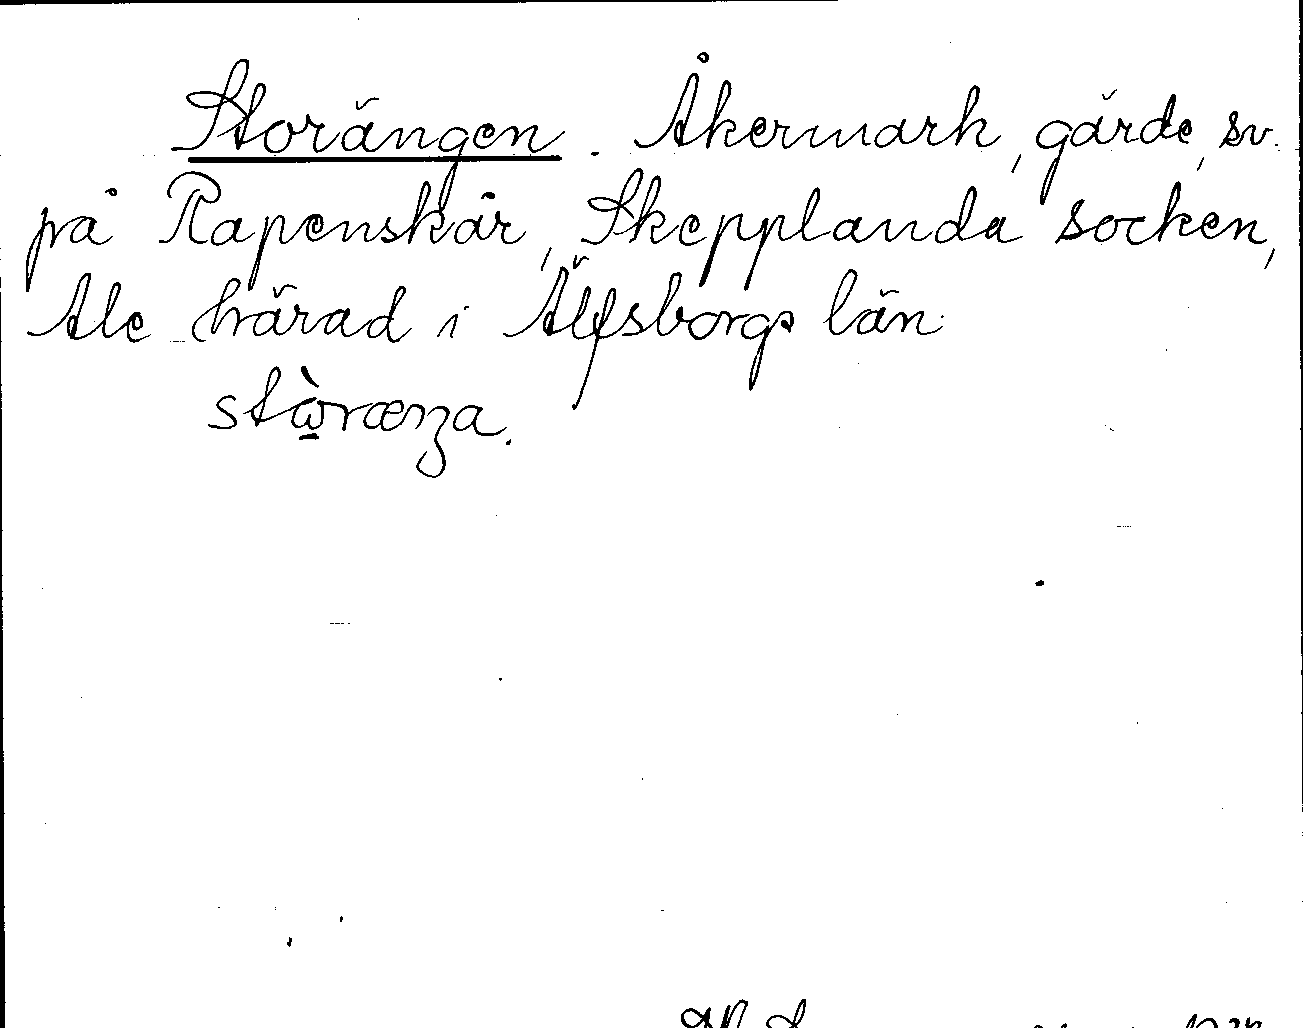 Storängen. Åkermark, gärde, sv.
på Rapenskår, Skepplanda socken,
Ale härad i Älfsborgs län